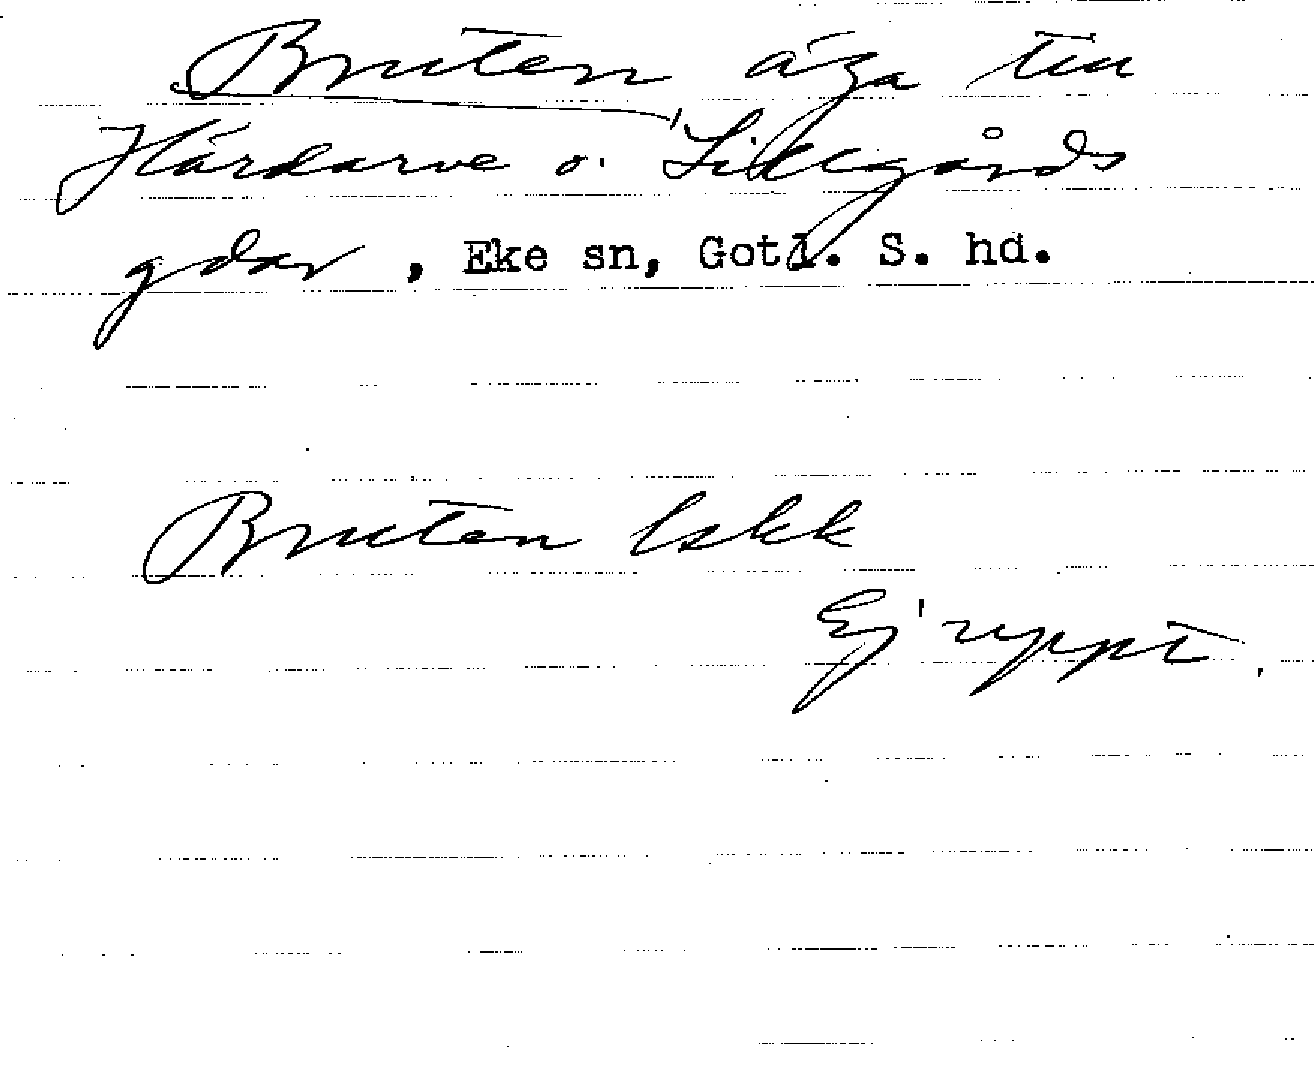 Bruten äga till
Hárdarve o. Lillgårds
gdar, Eke sn, Gotl. S. hd.
Bruten lskk
Ej uppt.